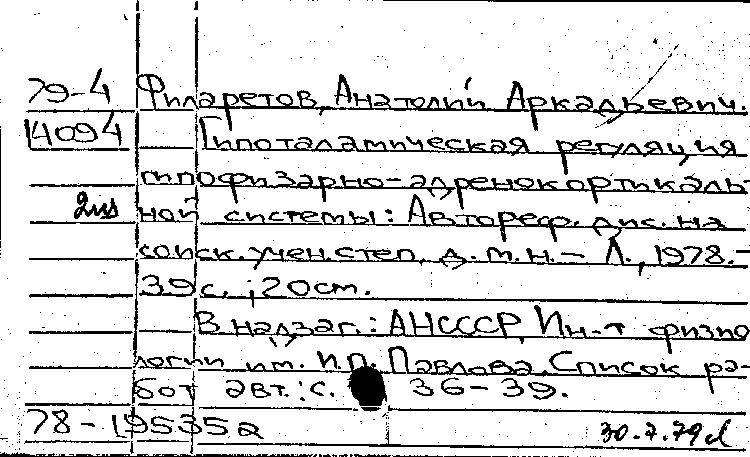 79-4 Филаретов, Анатолий Аркадьевич.
14094 Гипоталамическая регуляция
гипофизарно-адренокортикаль-
2из ной системы: Автореф. дис. на
соиск. учен. степ. д. м. н. - Л., 1978. -
39 с.; 20 см.
В надзаг.: АН СССР, Ин-т физио
логии им. И. П. Павлова. Список ра-
бот авт.: с. 36-39.
78-19535а 30.7.79